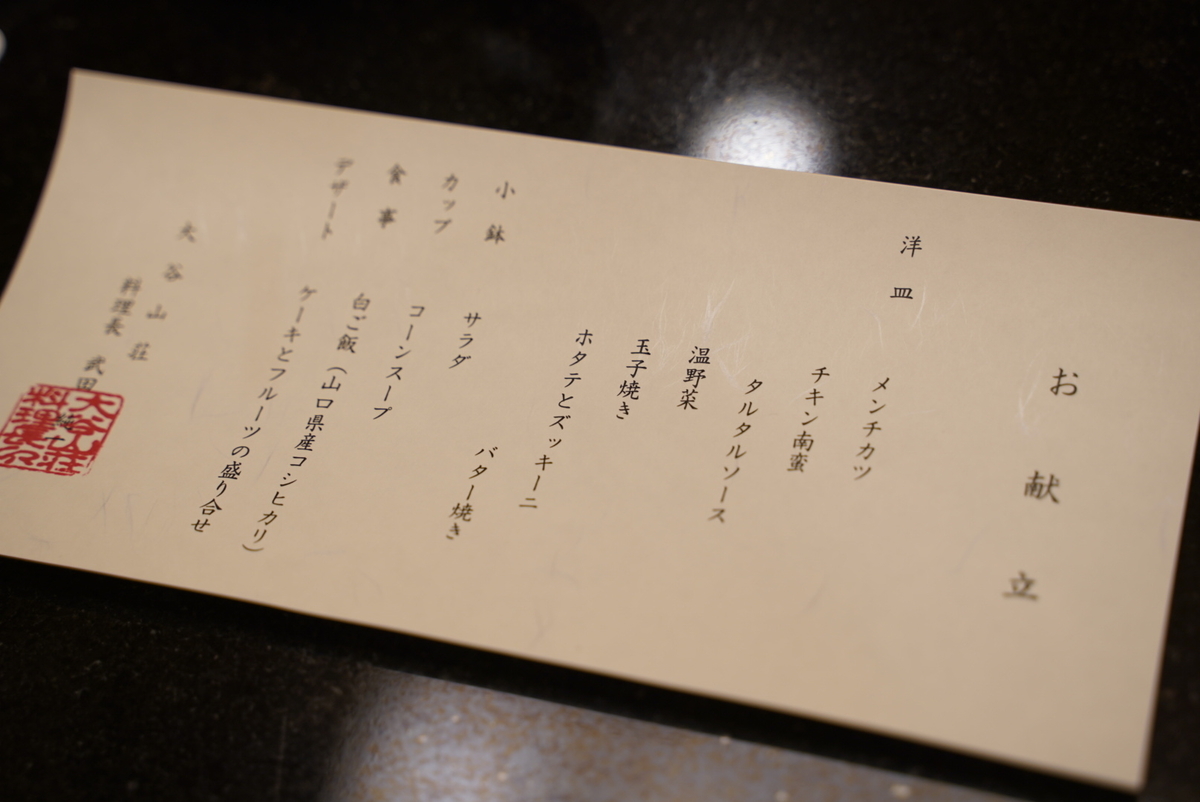 お献立
洋皿
メンチカツ
チキン南蛮
タルタルソース
温野菜
玉子焼き
ホタテとズッキーニ
バター焼き
小鉢
サラダ
カップ
コーンスープ
食事
白ご飯（山口県産コシヒカリ）
デザート
ケーキとフルーツの盛り合せ
大谷山荘
料理長 武田
大谷山荘
料理長